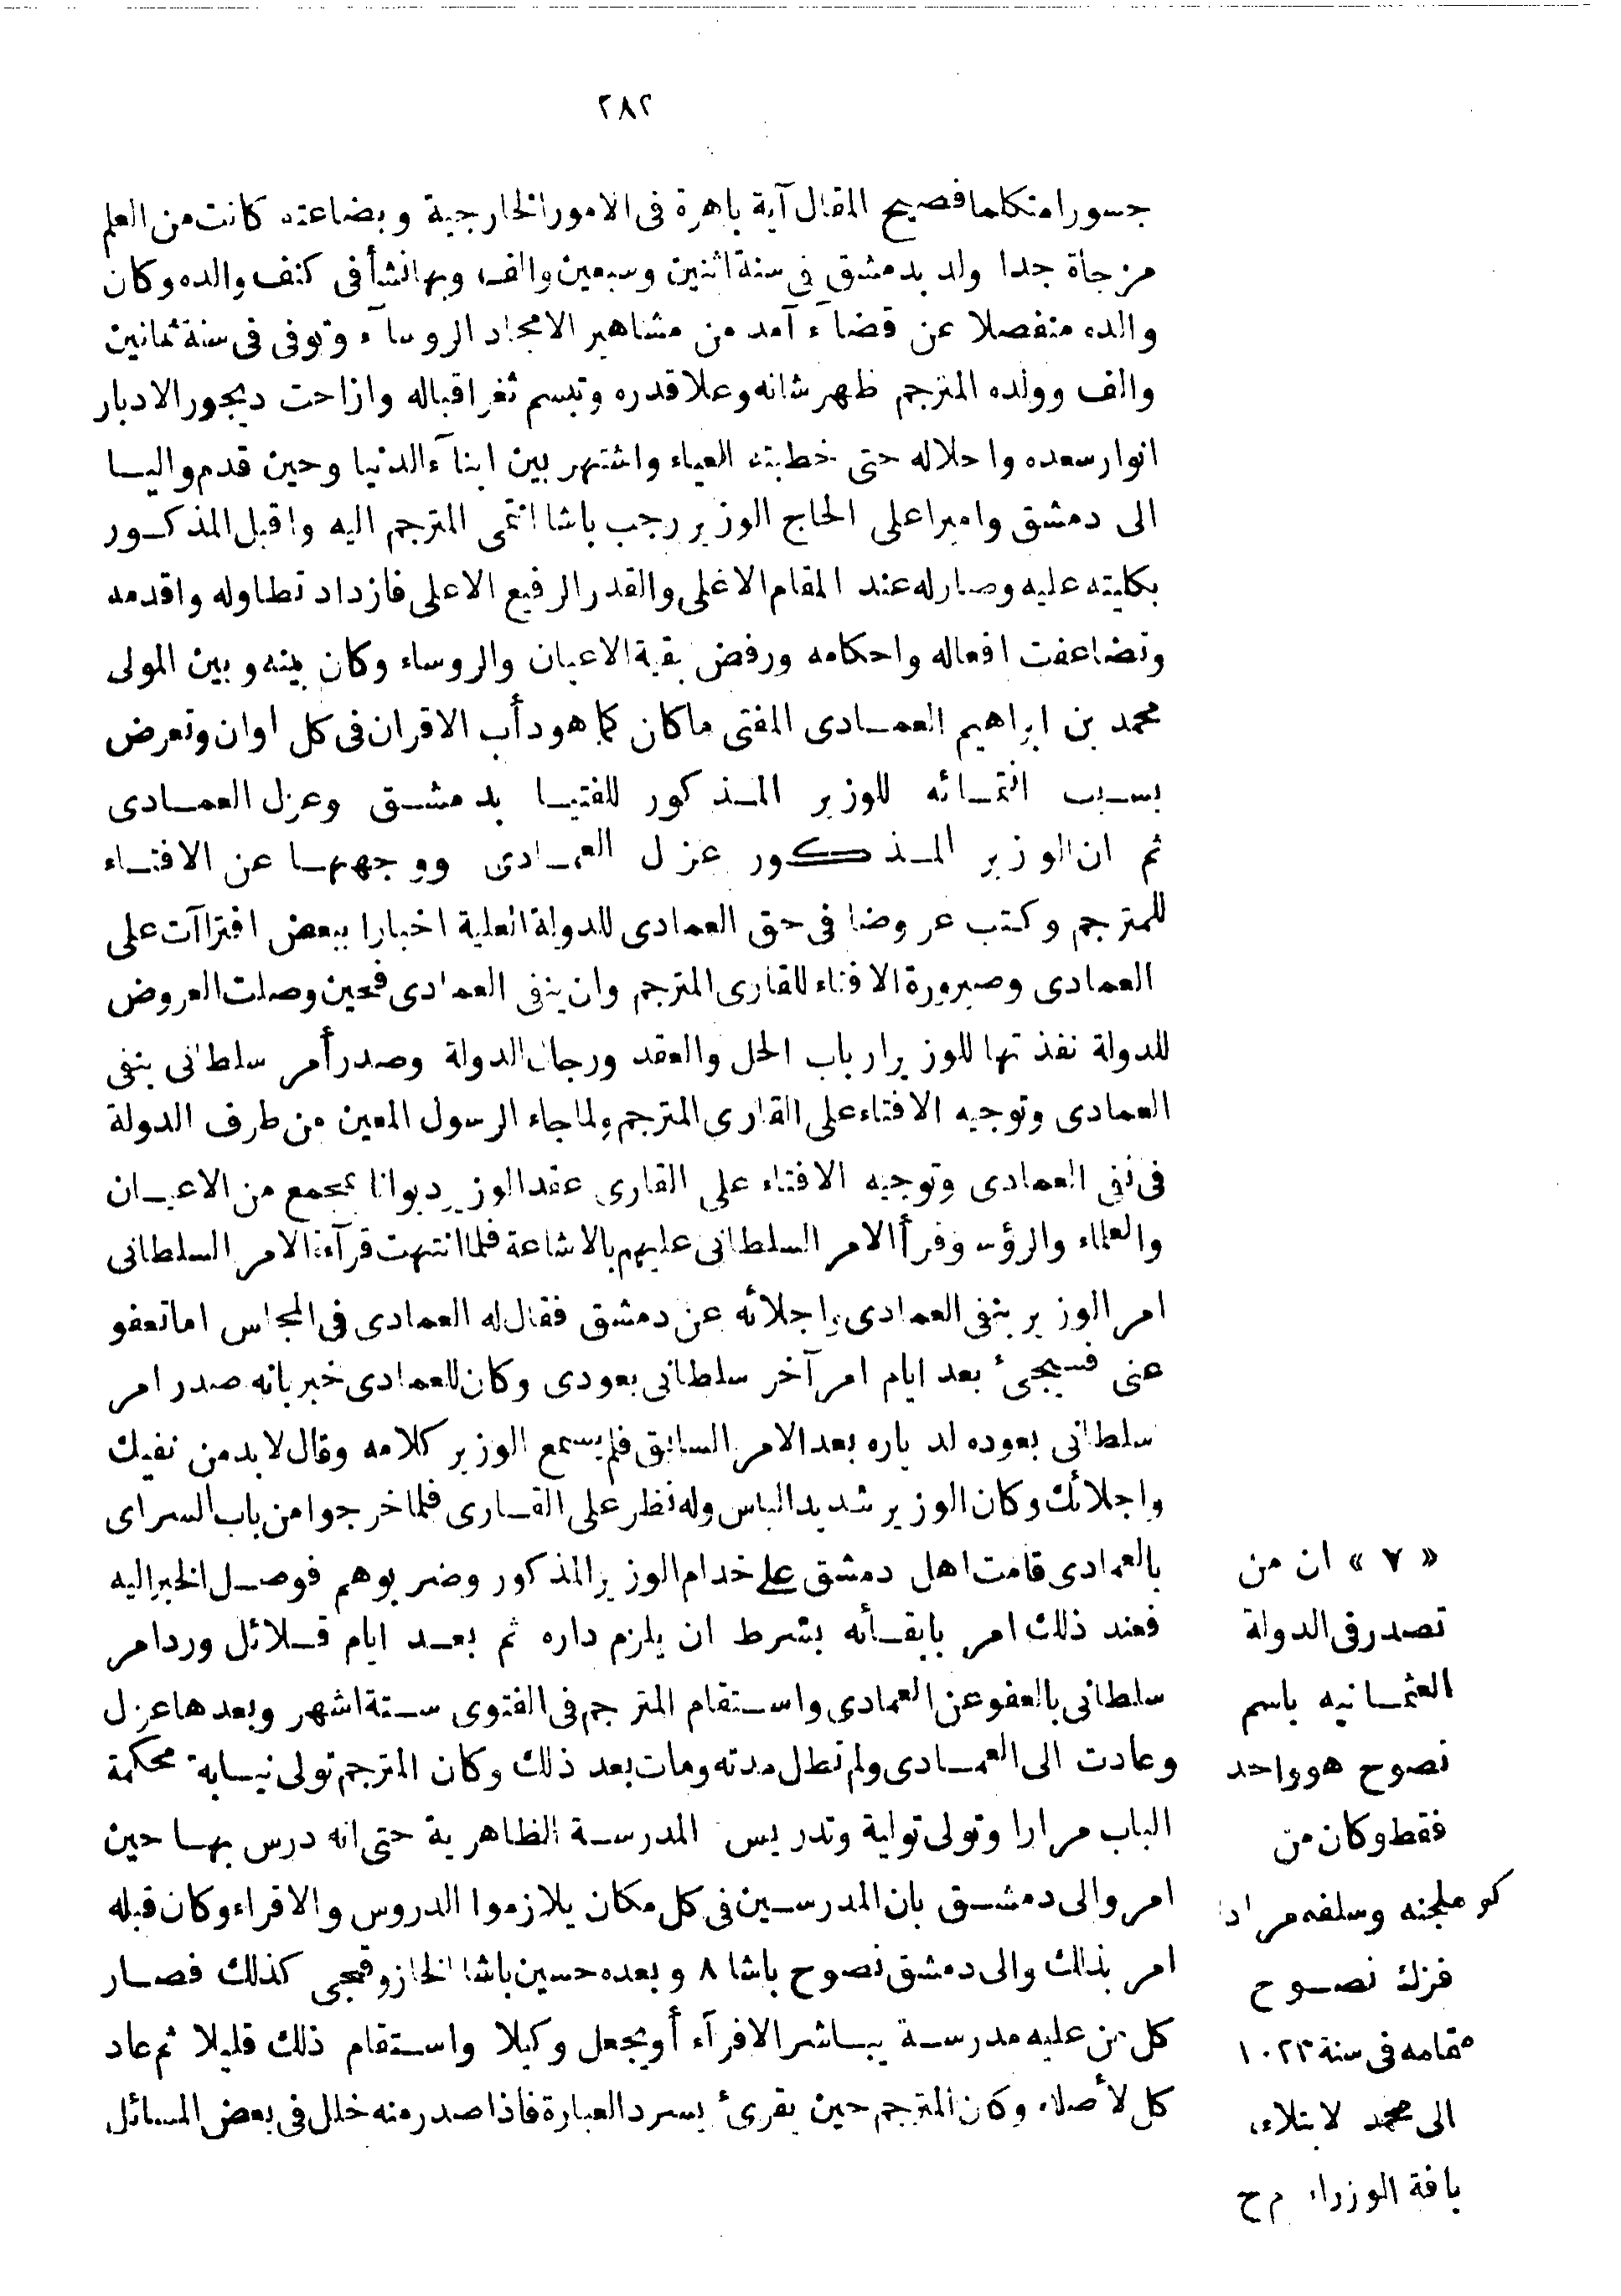 ٢٨٢
جسورا متكلما فصيح المقال آية باهرة فى الامور الخارجية وبضاعته كانت من العلم
مزجاة جدا ولد بدمشق فى سنة اثنين وسبعين والف وبها نشأ فى كنف والده وكان
والده منفصلا عن قضآء آمد من مشاهير الامجاد الروسآء وتوفى فى سنة ثمانين
والف وولده المترجم ظهر شانه وعلا قدره وتبسم ثغر اقباله وازاحت ديجور الادبار
انوار سعده واحلاله حتى خطبته العياء واشتهر بين ابنآء الدنيا وحين قدم واليا
الى دمشق واميرا على الحاج الوزير رجب باشا انتمى المترجم اليه واقبل المذكور
بكليته عليه وصار له عند المقام الاغلى والقدر الرفيع الاعلى فازداد تطاوله واقدمه
وتضاعفت افعاله واحكامه ورفض بقية الاعيان والروساء وكان بينه وبين المولى
محمد بن ابراهيم العمادى المفتى ما كان كما هو دأب الاقران فى كل اوان وتعرض
بسبب انتمائه للوزير المذكور للفتيا بدمشق وعزل العمادى
ثم ان الوزير المذكور عزل العمادى ووجهها عن الافتاء
للمترجم وكتب عروضا فى حق العمادى للدولة العلية اخبارا ببعض افتراآت على
العمادى وصيرورة الافتاء للقارى المترجم وان ينفى العمادى فحين وصلت العروض
للدولة نفذتها للوزير ارباب الحل والعقد ورجال الدولة وصدر أمر سلطانى بنفى
العمادى وتوجيه الافتاء على القارى المترجم ولما جاء الرسول المعين من طرف الدولة
فى نفى العمادى وتوجيه الافتاء على القارى عقد الوزير ديوانا بمجمع من الاعيان
والعلماء والرؤس وقرأ الامر السلطانى عليهم بالاشاعة فلما انتهت قرآءة الامر السلطانى
امر الوزير بنفى العمادى واجلائه عن دمشق فقال له العمادى فى المجلس اما تعفو
عنى فسيجىء بعد ايام امر آخر سلطانى بعودى وكان للعمادى خبر بانه صدر امر
سلطانى بعوده لدياره بعد الامر السابق فلم يسمع الوزير كلامه وقال لابد من نفيك
واجلائك وكان الوزير شديد الباس وله نظر على القارى فلما خرجوا من باب السراى
بالعمادى قامت اهل دمشق على خدام الوزير المذكور وضربوهم فوصل الخبر اليه
فعند ذلك امر بابقأئه بشرط ان يلزم داره ثم بعد ايام قلائل ورد امر
سلطانى بالعفو عن العمادى واستقام المترجم فى الفتوى ستة اشهر وبعدها عزل
وعادت الى العمادى ولم تطل مدته ومات بعد ذلك وكان المترجم تولى نيابة محكمة
الباب مرارا وتولى تولية وتدريس المدرسة الظاهرية حتى انه درس بها حين
امر والى دمشق بان المدرسين فى كل مكان يلازموا الدروس والاقراء وكان قبله
امر بذلك والى دمشق نصوح باشا ٨ وبعده حسين باشا الخازوقجى كذلك فصار
كل من عليه مدرسة يباشر الاقرآء أو يجعل وكيلا واستقام ذلك قليلا ثم عاد
كل لأصله وكان المترجم حين يقرئ يسرد العبارة فاذا صدر منه خلل فى بعض المسائل
« ٧ » ان من
تصدر فى الدولة
العثمانيه باسم
نصوح هو واحد
فقط وكان من
كوملجنه وسلفه مراد
فزك نصوح
مقامه فى سنة ١٠٢٣
الى محمد لابتلاءه
بافة الوزراء م ح